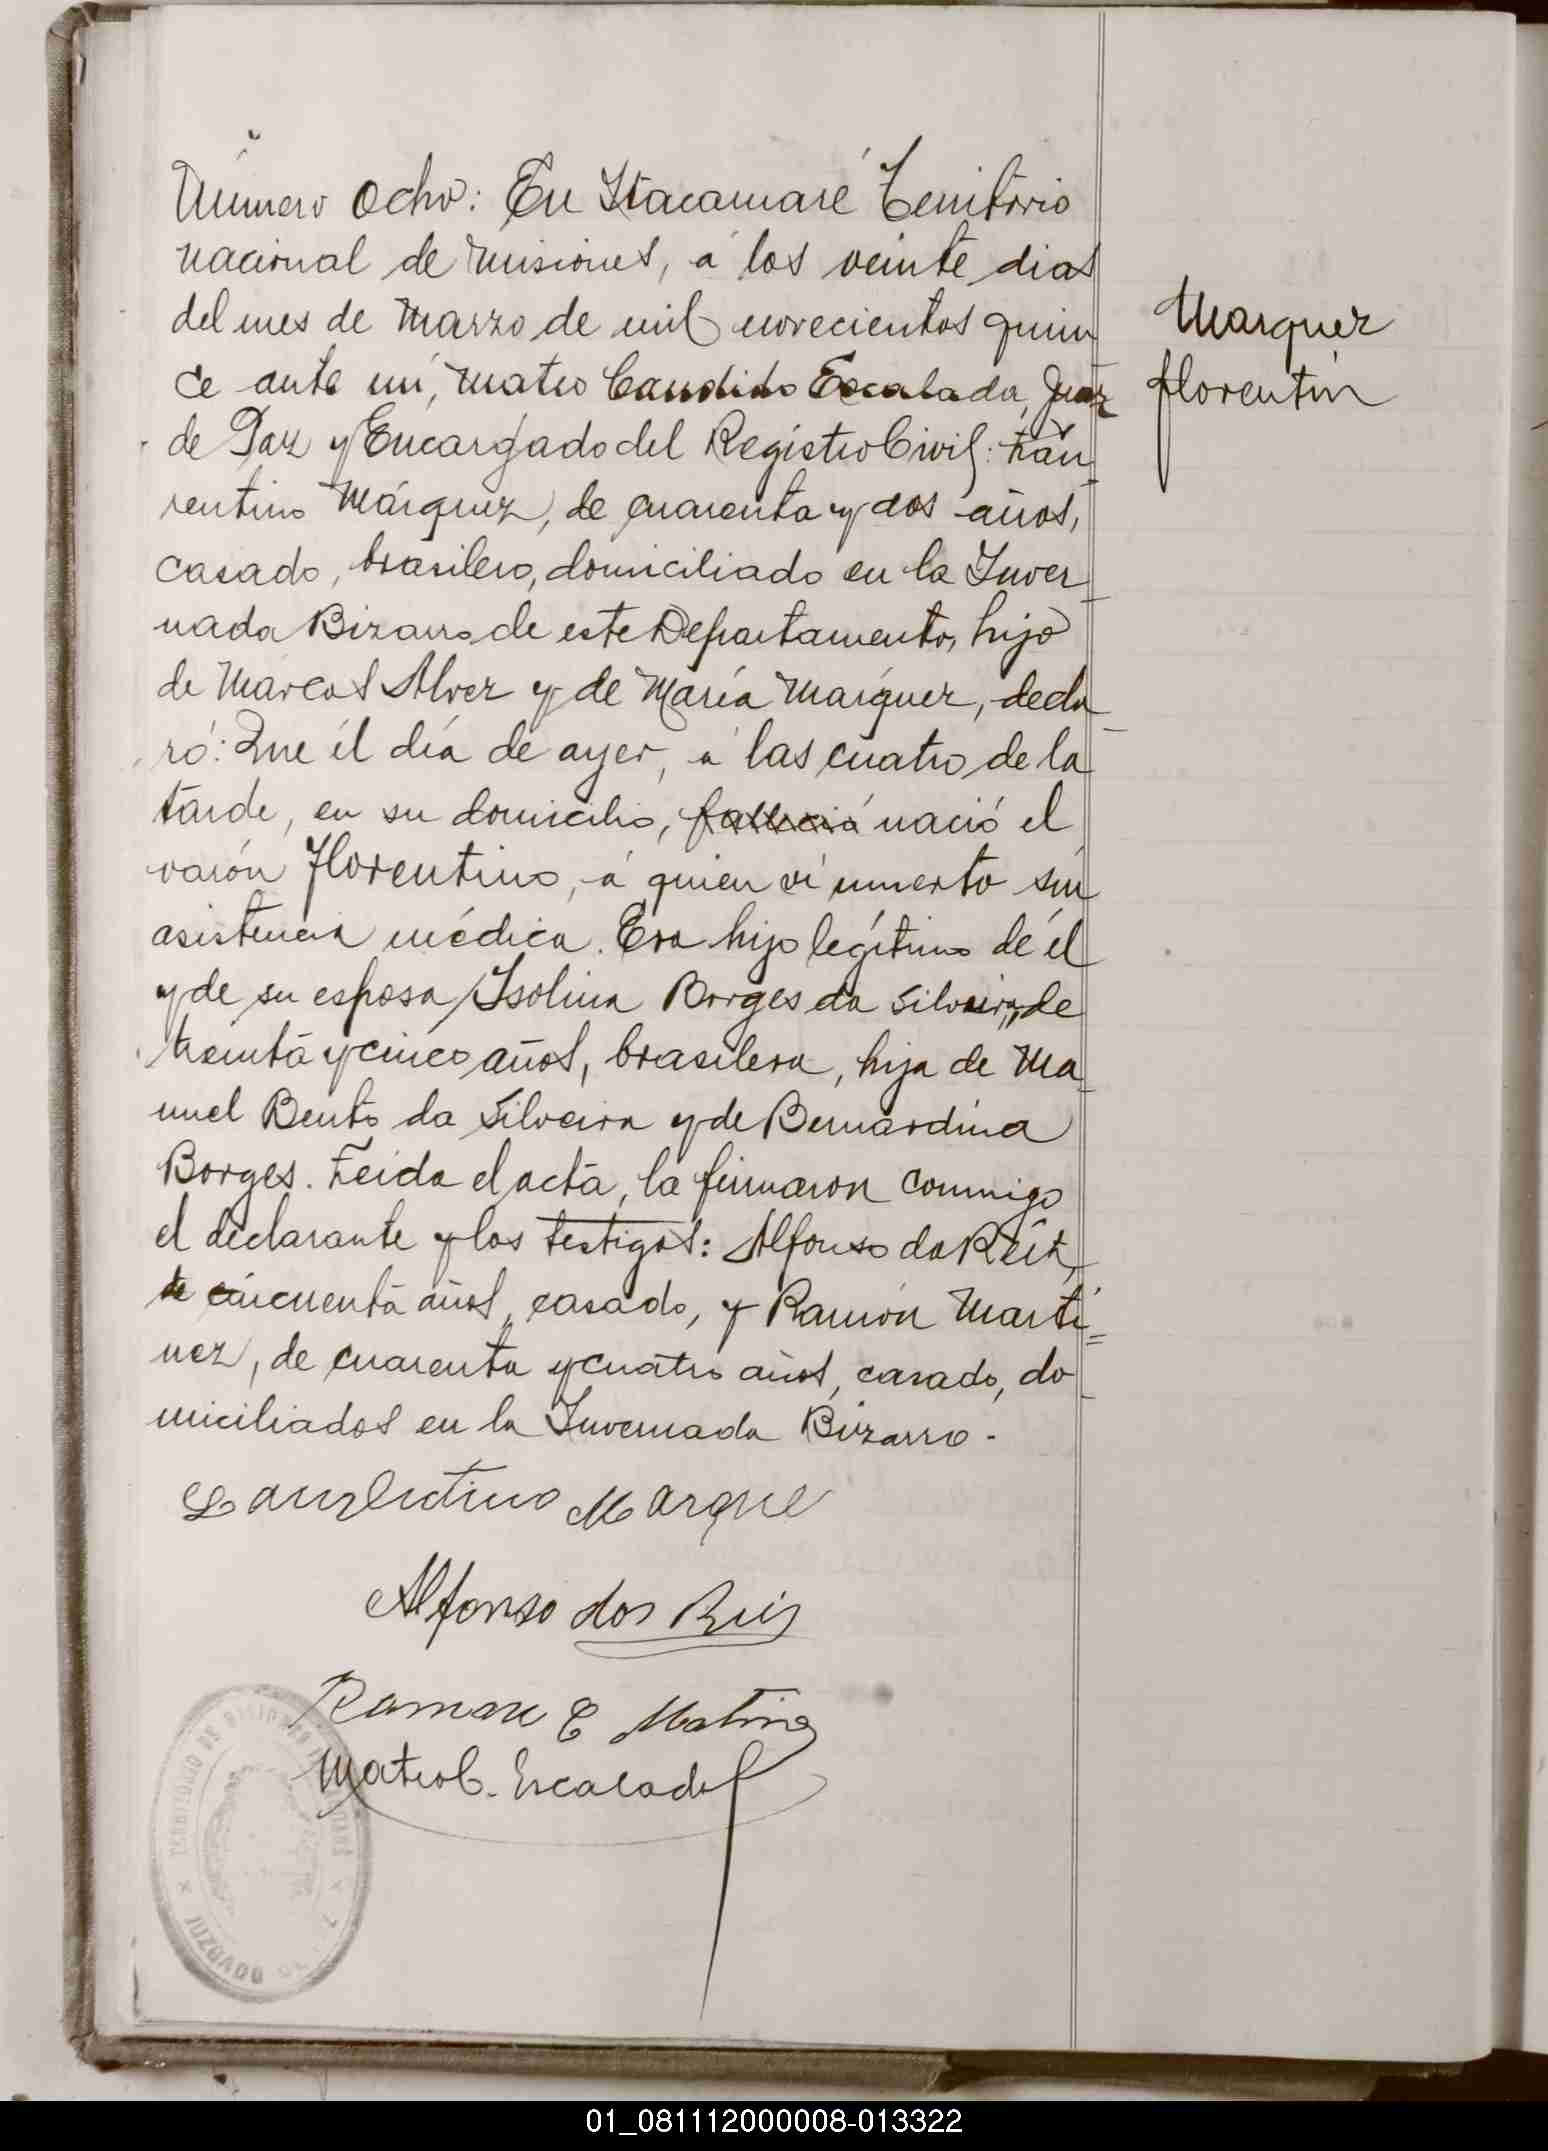 Número Ocho: En Itacaruaré Territorio
nacional de Misiones, á los veinte dias
del mes de Marzo de mil novecientos quin
ce ante mí, Mateo Candido Escalada, Juez
de Paz y Encargado del Registro Civil:
rentino Márquez, de cuarenta y dos años,
casado, brasilero, domiciliado en la Inver-
nada Bizarro de este Departamento, hijo
de Marcos Alvez y de María Marquez, decla-
ró: Que el día de ayer, á las cuatro de la
tarde, en su domicilio, falleció nació el
varón Florentino, á quien ví muerto sin
asistencia médica. Era hijo legítimo de él
y de su esposa Isolina Borges da Silveira, de
treinta y cinco años, brasilera, hija de Ma-
nuel Bento da Silveira y de Bernardina
Borges. Leida el acta, la firmaron conmigo
el declarante y los testigos: Alfonso da
de cincuenta años, casado, y Ramón Martí=
nez, de cuarenta y cuatro años, casado, do-
miciliados en la Invernada Bizarro.-
Marquez
Florentin
Marque
Alfonso dos
Ramon C
Mateo C. Escalada
JUZGADO
01_081112000008-013322